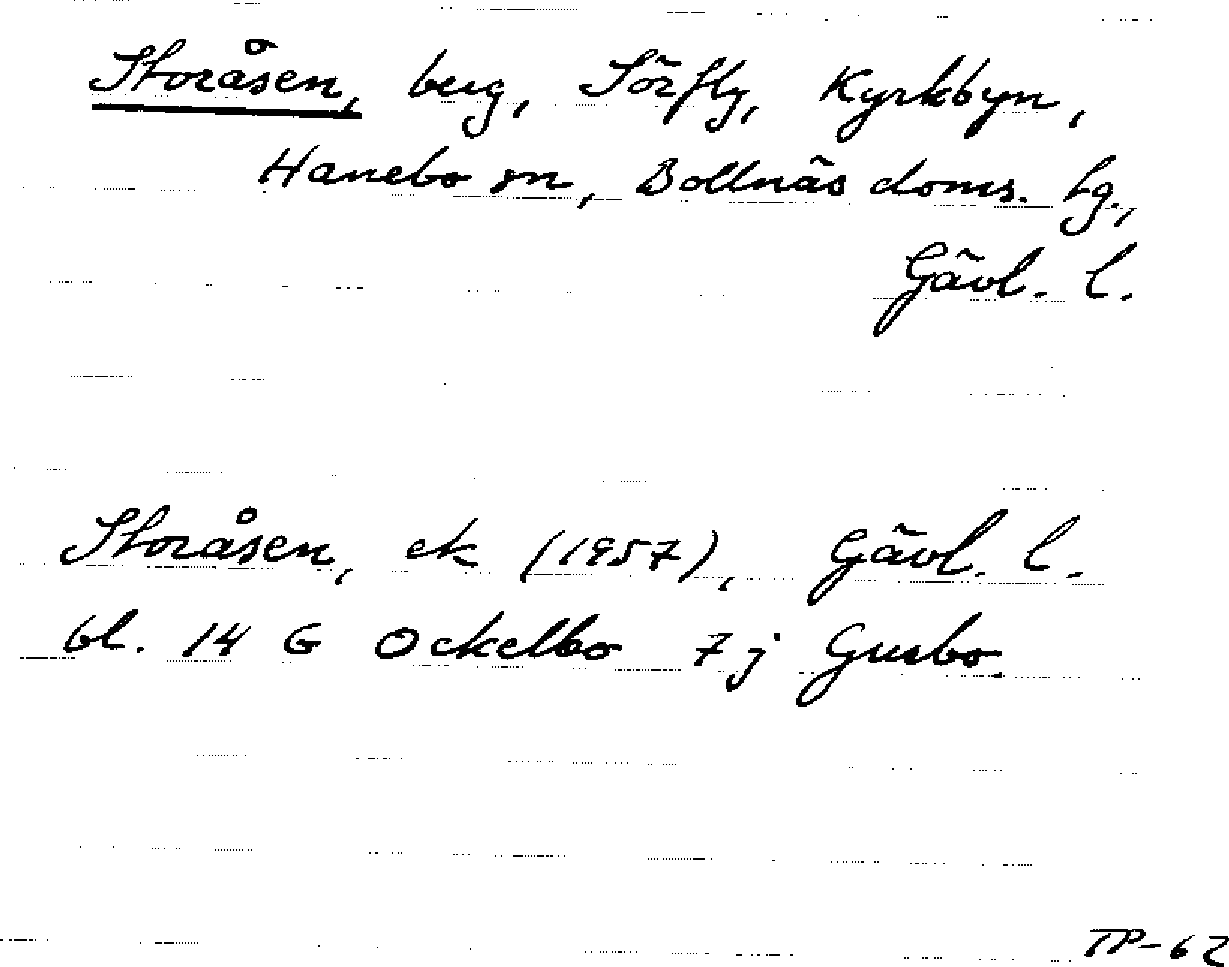 Storåsen, berg, Sörfly, Kyrkbyn,
Hanebo sn, Bollnäs doms. hg.,
Gävl. l.
Storåsen, ek (1957), Gävl. l.
bl. 14 G Ockelbo 7 j Gusbo
TP-62